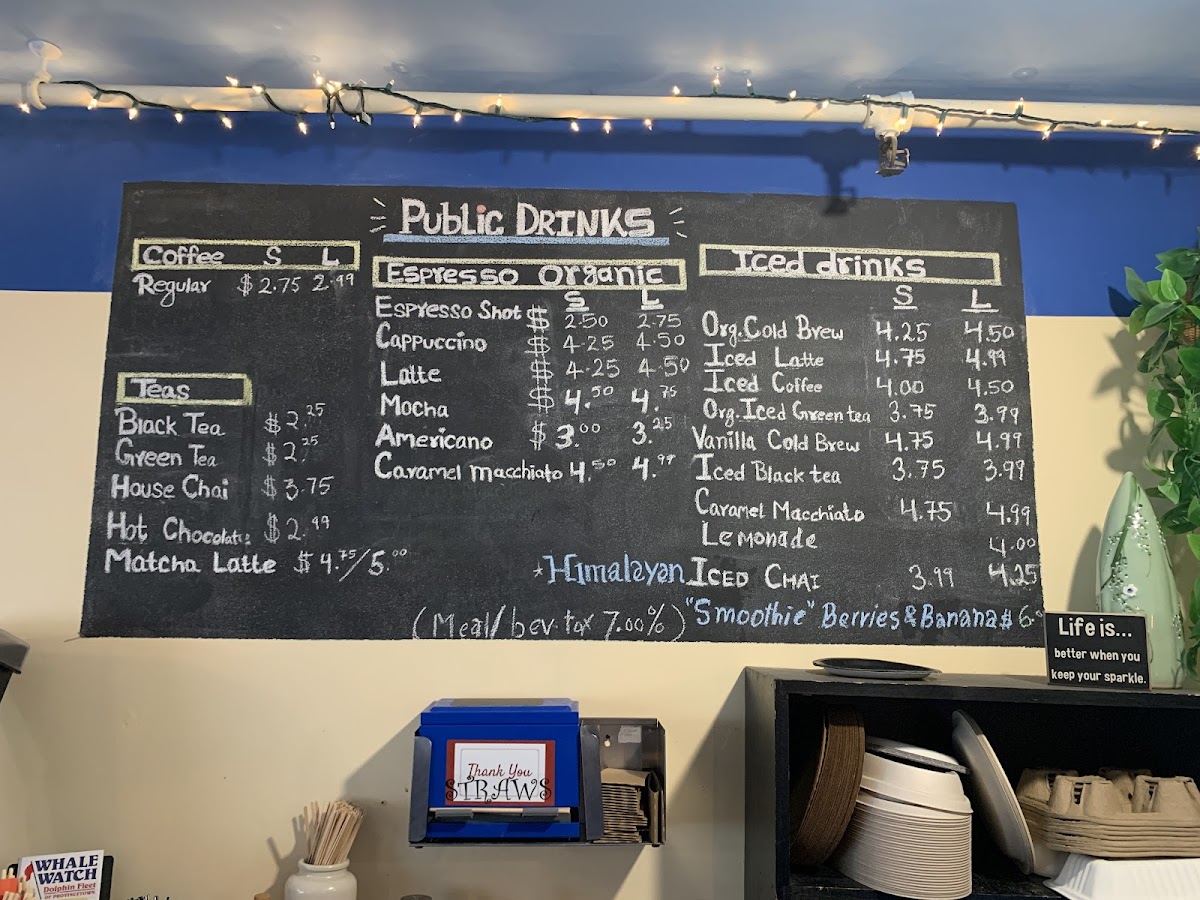 Public DRINKS
Coffee S L
Regular $2.75 2.99
Teas
Black Tea $2.25
Green Tea $2.25
House Chai $3.75
Hot Chocolate $2.99
Matcha Latte $4.75/5.00
Espresso Organic
S L
Espresso Shot $ 2.50 2.75
Cappuccino $ 4.25 4.50
Latte $ 4.25 4.50
Mocha $ 4.50 4.75
Americano $ 3.00 3.25
Caramel macchiato 4.50 4.99
Iced drinks
S L
Org. Cold Brew 4.25 4.50
Iced Latte 4.75 4.99
Iced Coffee 4.00 4.50
Org. Iced Green tea 3.75 3.99
Vanilla Cold Brew 4.75 4.99
Iced Black tea 3.75 3.99
Caramel Macchiato 4.75 4.99
Lemonade 4.00
*Himalayan ICED CHAI 3.99 4.25
"Smoothie" Berries & Banana $
(Meal/bev. tax 7.00%)
Life is...
better when you
keep your sparkle.
Thank You
STRAWS
WHALE
WATCH
Dolphin Fleet
OF PROVINCETOWN